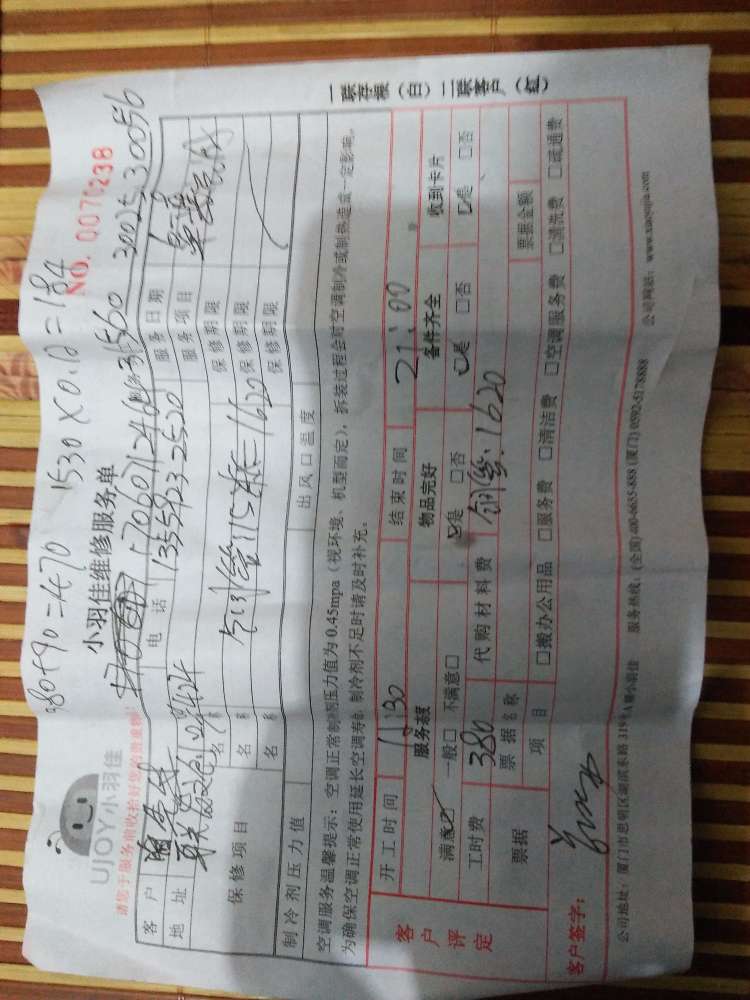 380+90=470 1530×0.12=184
UJOY小羽佳
小羽佳维修服务单
NO. 0070238
请您于服务前收拾好您的贵重物
客户
电话 17060712464
服务日期
30025.30056
地址
13559232520
服务项目
保修项目
名
保修期限
名 铜管 15米=1620 保修期限
名
保修期限
制冷剂压力值
出风口温度
空调服务温馨提示：空调正常制冷压力值为0.45mpa（视环境、机型而定），拆装过程会对空调制冷或制热造成一定影响。
为确保空调正常使用延长空调寿命，制冷剂不足时请及时补充。
一联存根（白）二联客户（红）
客户评定
开工时间
结束时间 21:00
服务态度
物品完好
备件齐全
收到卡片
满意□ 一般□ 不满意□
□是 □否
□是 □否
□是 □否
工时费 380 代购材料费 铜管:1620
票据
票据名称
票据金额
项目
□搬办公用品 □服务费 □清洁费 □空调服务费 □清洗费 □疏通费
客户签字：
公司地址：厦门市思明区湖滨东路319号A幢小羽佳 服务热线：(全国)400-6655-888 (厦门)0592-5178888 公司网站：www.xiaoyujia.com